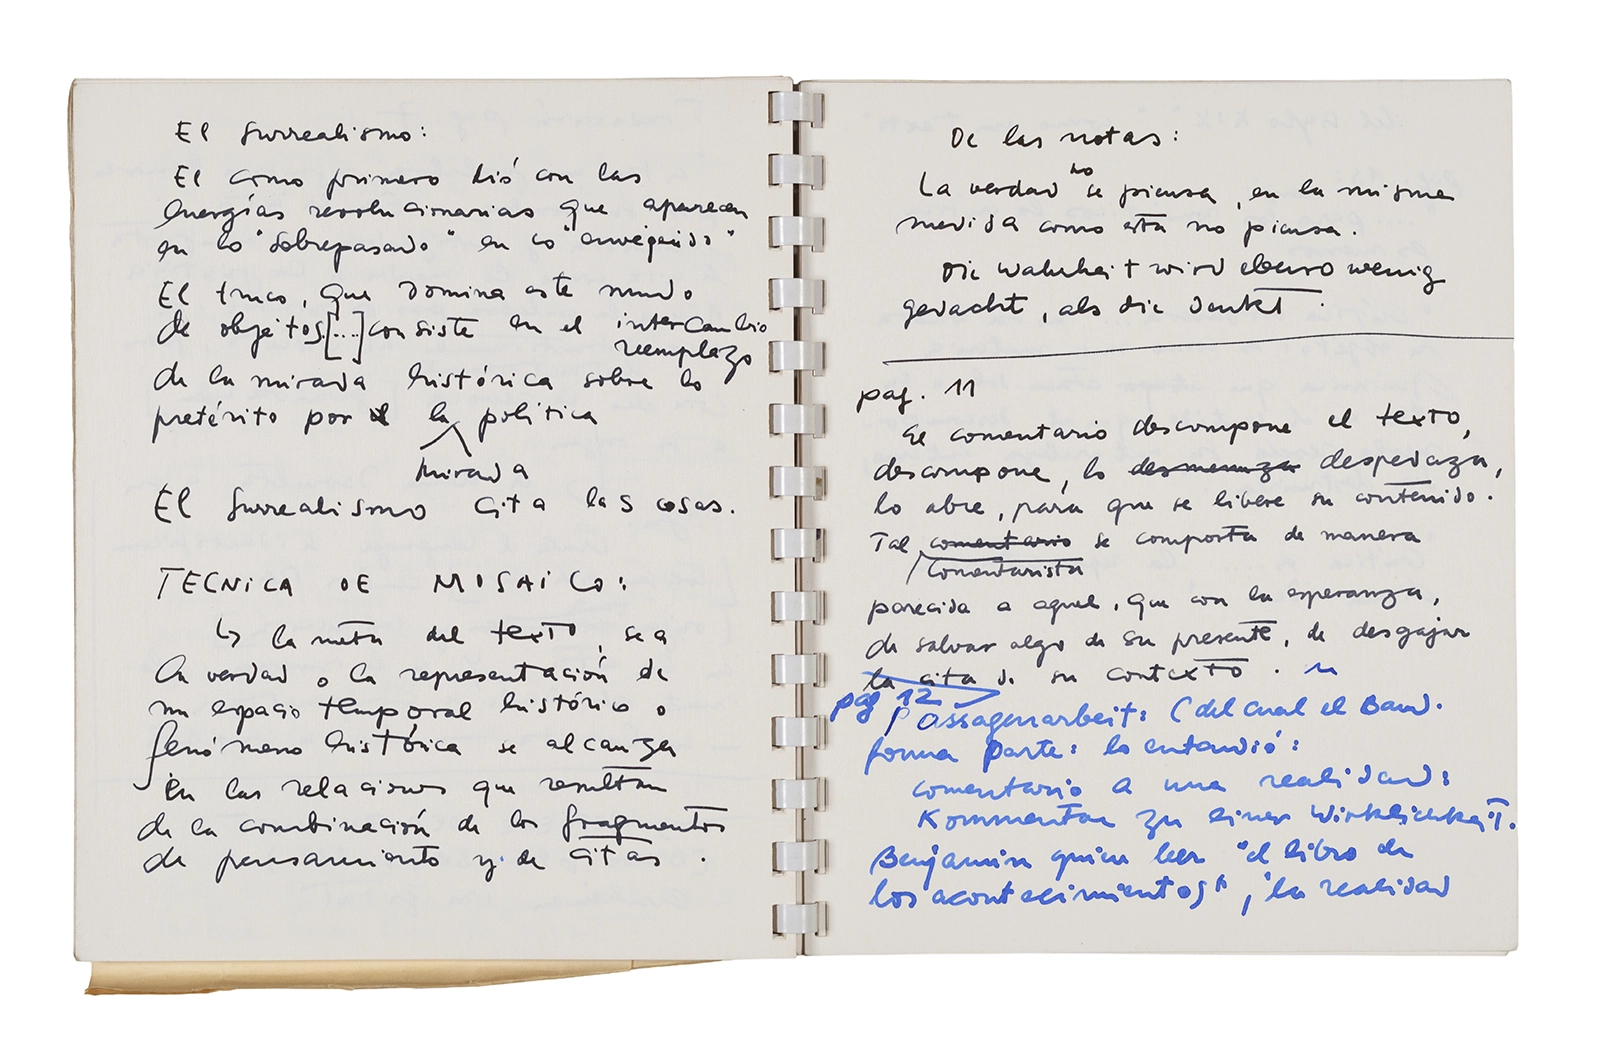 El surrealismo:
El como primero dió con las
energías revolucionarias que aparecen
en lo "sobrepasado" en lo "envejecido"
El truco, que domina este mundo
de objetos[...]consiste en el intercambio
reemplazo
de la mirada histórica sobre lo
pretérito por la política
mirada
El surrealismo cita las cosas.
TECNICA DE MOSAICO:
↳ la meta del texto, sea
la verdad o la representación de
un espacio temporal histórico o
fenómeno histórica se alcanza
en las relaciones que resultan
de la combinación de los fragmentos
de pensamiento y de citas.
De las notas:
no
La verdad se piensa, en la misma
medida como esta no piensa.
Die Wahrheit wird ebenso wenig
gedacht, als die denkt.
pag. 11
El comentario descompone el texto,
descompone, lo desmenuza despedaza,
lo abre, para que se libere su contenido.
Tal comentario se comporta de manera
comentarista
parecida a aquel, que con la esperanza,
de salvar algo de su presente, de desgajar
la cita de su contexto.
pag 12
Passagenarbeit: (del cual el Baud.
forma parte: lo entendió:
comentario a una realidad:
Kommentar zu einer Wirklichkeit.
Benjamin quien leer "el libro de
los acontecimientos", la realidad